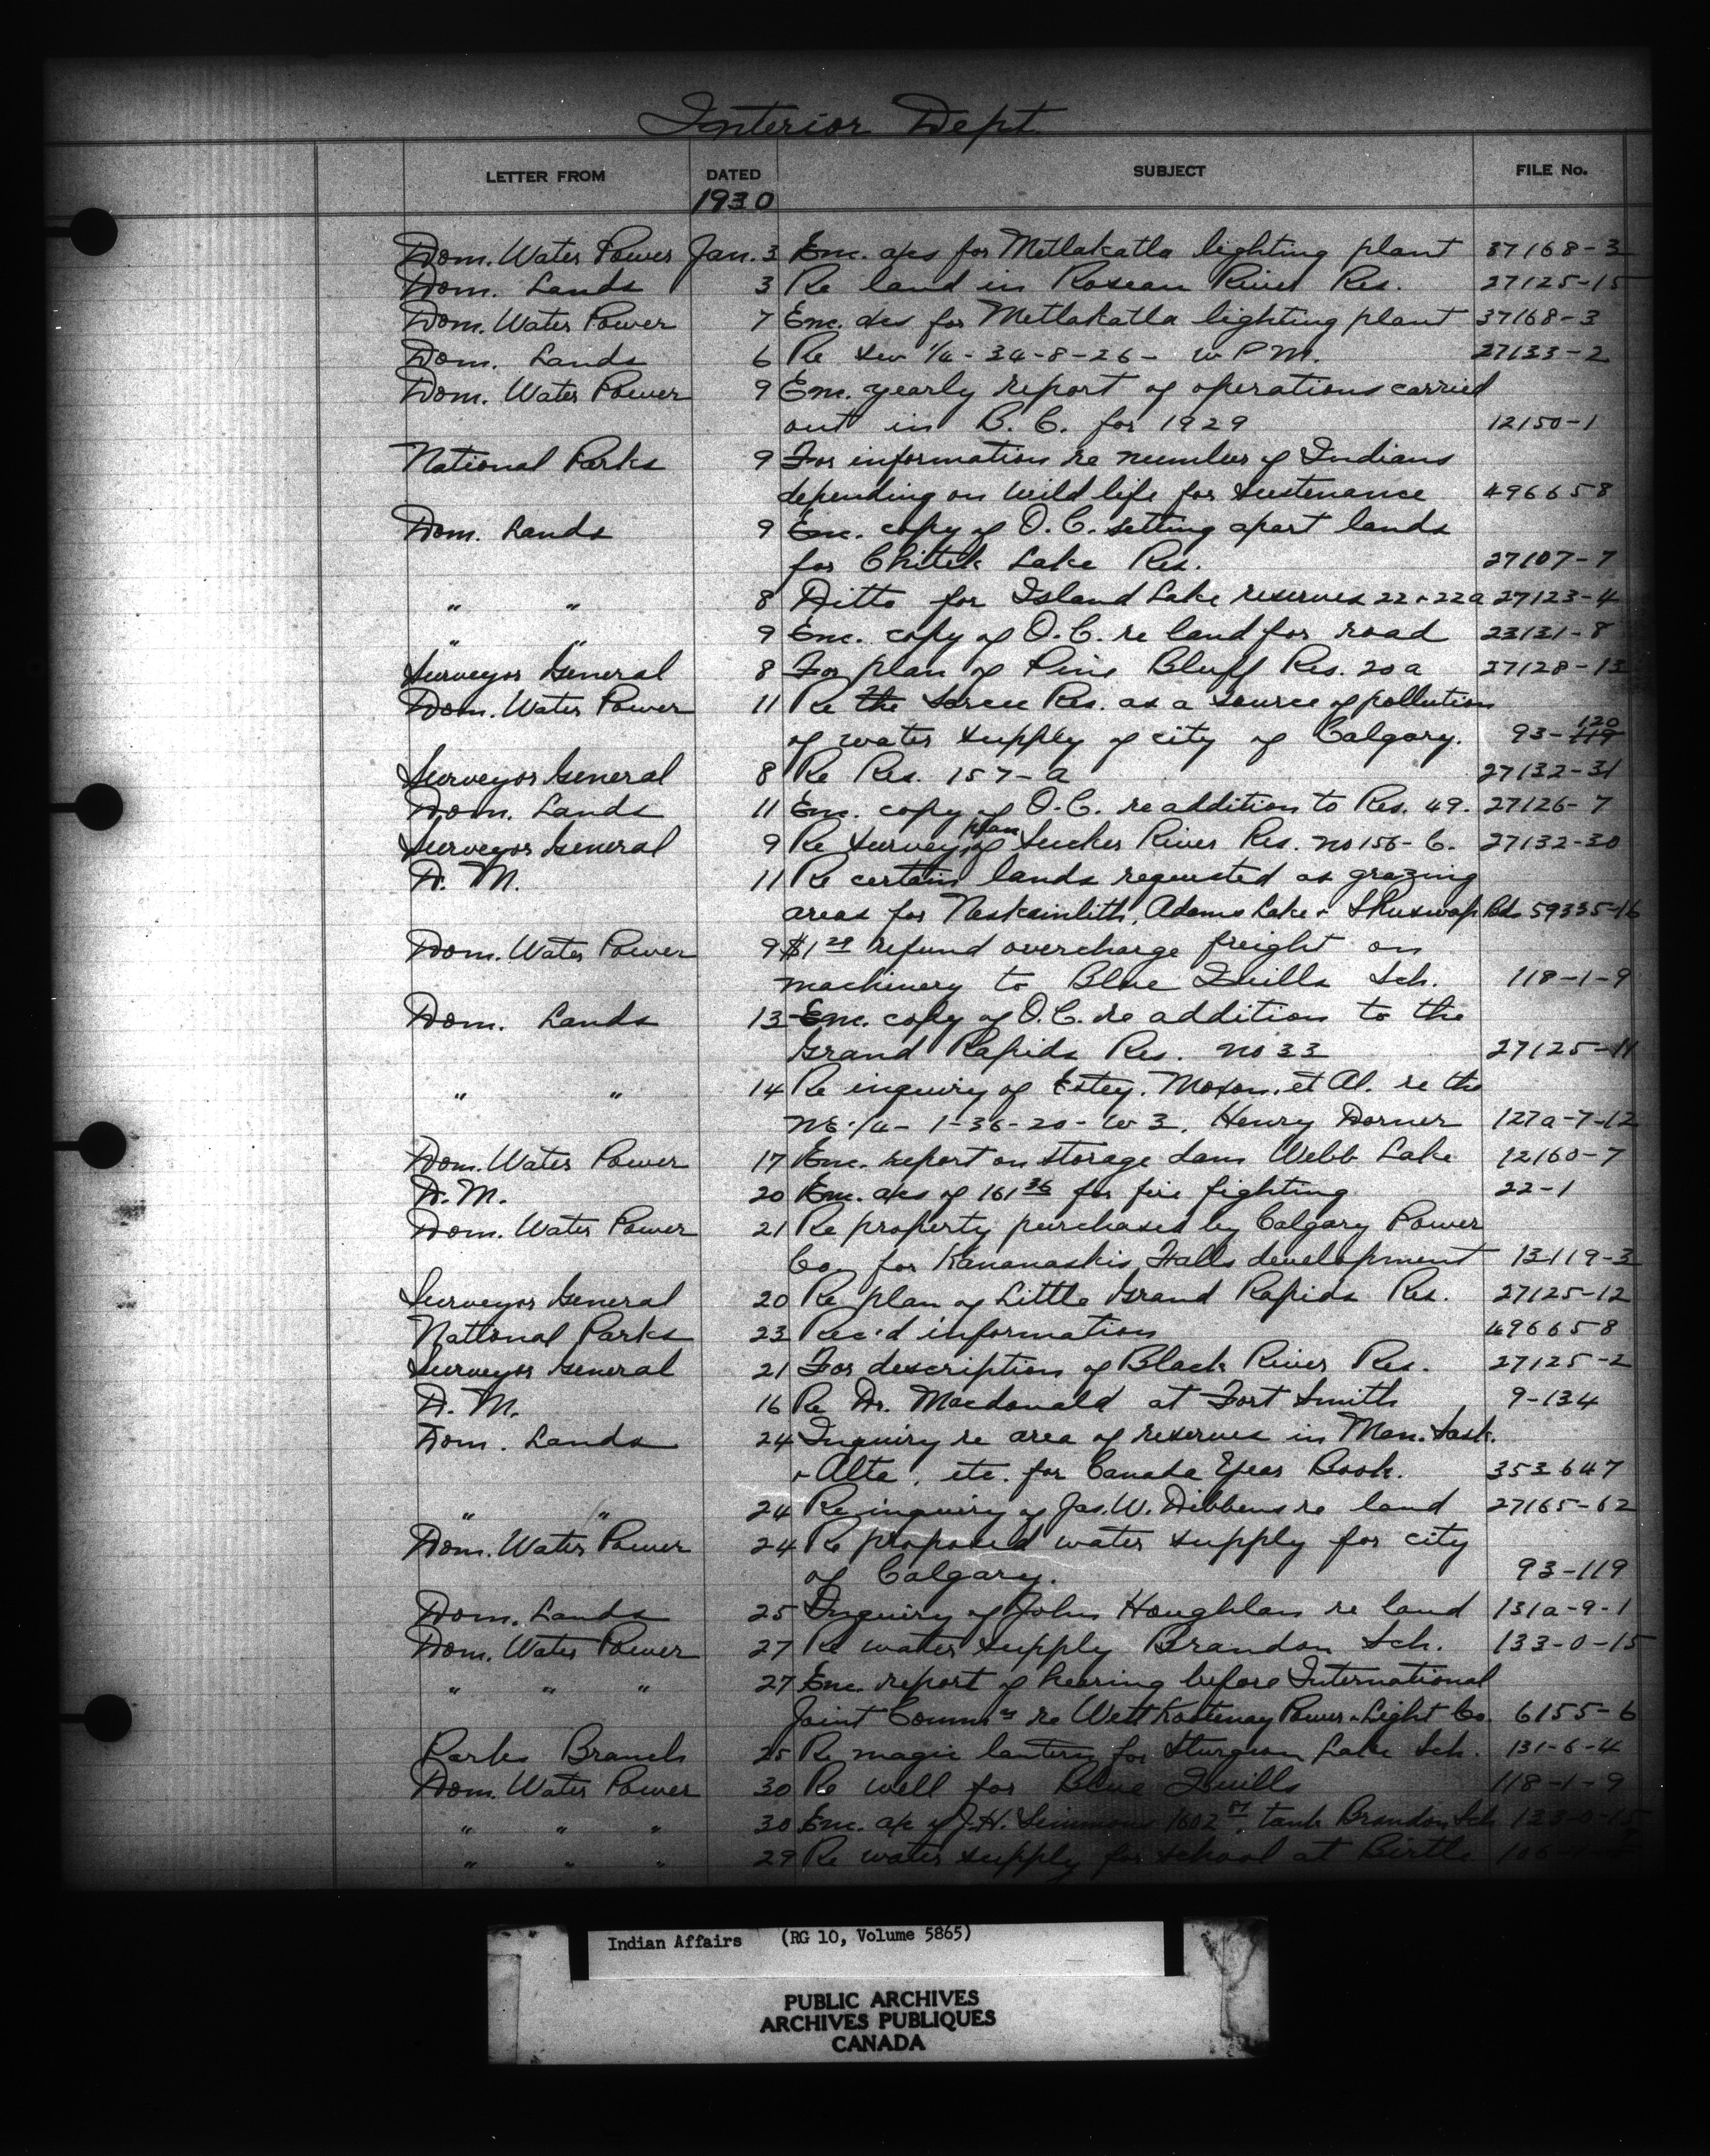 Interior Dept
LETTER FROM DATED SUBJECT FILE No.
1930
Dom. Water Power Jan. 3 Enc. a/cs for Metlakatla lighting plant 37168-3
Dom. Lands 3 Re land in Roseau River Res. 27125-15
Dom. Water Power 7 Enc. a/cs for Metlakatla lighting plant 37168-3
Dom. Lands 6 Re SW 1/4-34-8-26- W P M. 27133-2
Dom. Water Power 9 Enc. yearly report of operations carried
out in B. C. for 1929 12150-1
National Parks 9 For information re number of Indians
depending on wild life for sustenance 496658
Dom. Lands 9 Enc. copy of O.C. setting apart lands
for Chitek Lake Res. 27107-7
" " 8 Ditto for Island Lake reserves 22 & 22a 27123-4
" " 9 Enc. copy of O.C. re land for road 23131-8
Surveyor General 8 For plan of Pine Bluff Res. 20a 27128-13
Dom. Water Power 11 Re the Sarcee Res. as a source of pollution
of water supply of city of Calgary. 93-119 120
Surveyor General 8 Re Res. 157-a 27132-31
Dom. Lands 11 Enc. copy of O.C. re addition to Res. 49. 27126-7
Surveyor General 9 Re survey plan of Sucker River Res. no 156-C. 27132-30
D. M. 11 Re certain lands requested as grazing
areas for Neskainlith, Adams Lake & Shuswap Bds 59335-16
Dom. Water Power 9 $1 29 refund overcharge freight on
machinery to Blue Quills Sch. 118-1-9
Dom. Lands 13 Enc. copy of O.C. re addition to the
Grand Rapids Res. no 33 27125-11
" " 14 Re inquiry of Estey, Moxon, et Al. re the
NE 1/4-1-36-20-W3. Henry Dorner 127a-7-12
Dom. Water Power 17 Enc. report on storage dam Webb Lake 12160-7
D. M. 20 Enc. a/cs of 161 36 for fire fighting 22-1
Dom. Water Power 21 Re property purchased by Calgary Power
Co. for Kananaskis Falls development 13119-3
Surveyor General 20 Re plan of Little Grand Rapids Res. 27125-12
National Parks 23 Rec'd information 496658
Surveyor General 21 For description of Black River Res. 27125-2
D. M. 16 Re Dr. Macdonald at Fort Smith 9-134
Dom. Lands 24 Inquiry re area of reserves in Man. Sask.
& Alta, etc. for Canada Year Book. 353647
" " 24 Re inquiry of Jas. W. Dibbens re land 27165-62
Dom. Water Power 24 Re proposed water supply for city
of Calgary. 93-119
Dom. Lands 25 Inquiry of John Houghlan re land 131a-9-1
Dom. Water Power 27 Re water supply Brandon Sch. 133-0-15
" " " 27 Enc. report of hearing before International
Joint Commn re West Kootenay Power & Light Co. 6155-6
Parks Branch 25 Re magic lantern for Sturgeon Lake Sch. 131-6-4
Dom. Water Power 30 Re well for Blue Quills 118-1-9
" " " 30 Enc. a/c of J.H. Simmons 1602 tank Brandon Sch 133-0-15
" " " 29 Re water supply for school at Birtle
Indian Affairs (RG 10, Volume 5865)
PUBLIC ARCHIVES
ARCHIVES PUBLIQUES
CANADA